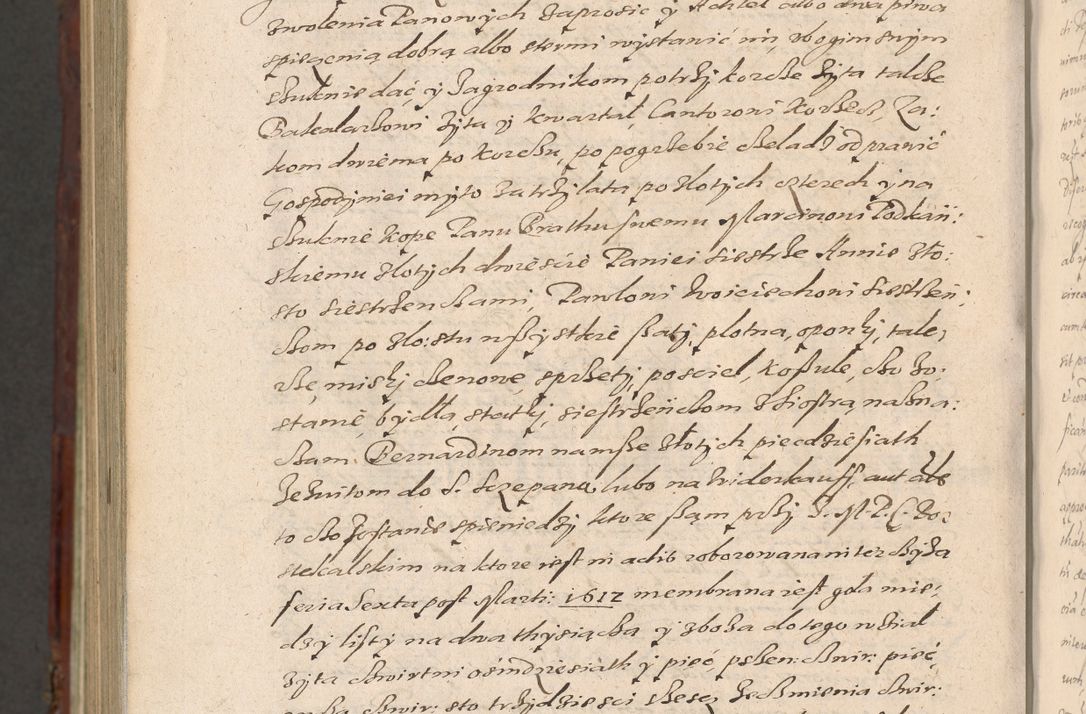 zwolenia Panowych zaprosic y Achtel albo dwa piwa
spieczenią dobrą albo stermi wystawić im, vbogim swym
suknie dać, y Zagrodnikom po trzy korcze żyta takze
Bakalarzowi żyta y kwartał, Cantorowi Korzecz, Za:
kom dwiema po korczu, po pogrzebie czeladź odprawić
Gospodyniei myto za trzy lata po złotych czterech y na
suknie kope Panu Brathu swemu Marcinowi Podkań:
skiemu złotych dwiescie Paniei siestrze Annie zło:
sto siestrzenczami, Pawłowi Woiciechowi siestrzeń:
czom po zło: stu wszystkie szaty, plotna, opony, tale,
rze, miszy cenowe, sprzety, posciel, koszule, czo zo:
stanie, bydła, statky, siestrzeńczom z siostrą, na
Bernardinom na msze złotych piecdziesiath
Jezuitom do S. Sczepana, lubo na widerkauff, aut
to czo zostanie spieniedzy ktore sząm przy J. M. P. C.
na ktore iest mi actib roborowana niterzhyza
feria Sexta post Marti: 1612 membrana iest goła mie,
dzy listy na dwa thysiącza y zboza do tego wział
żyta czwirtni osimdziesiath y pieć pszen: czwir: pieć,
czwir: sto trzydziesci szesc Jeczmienia czwir: